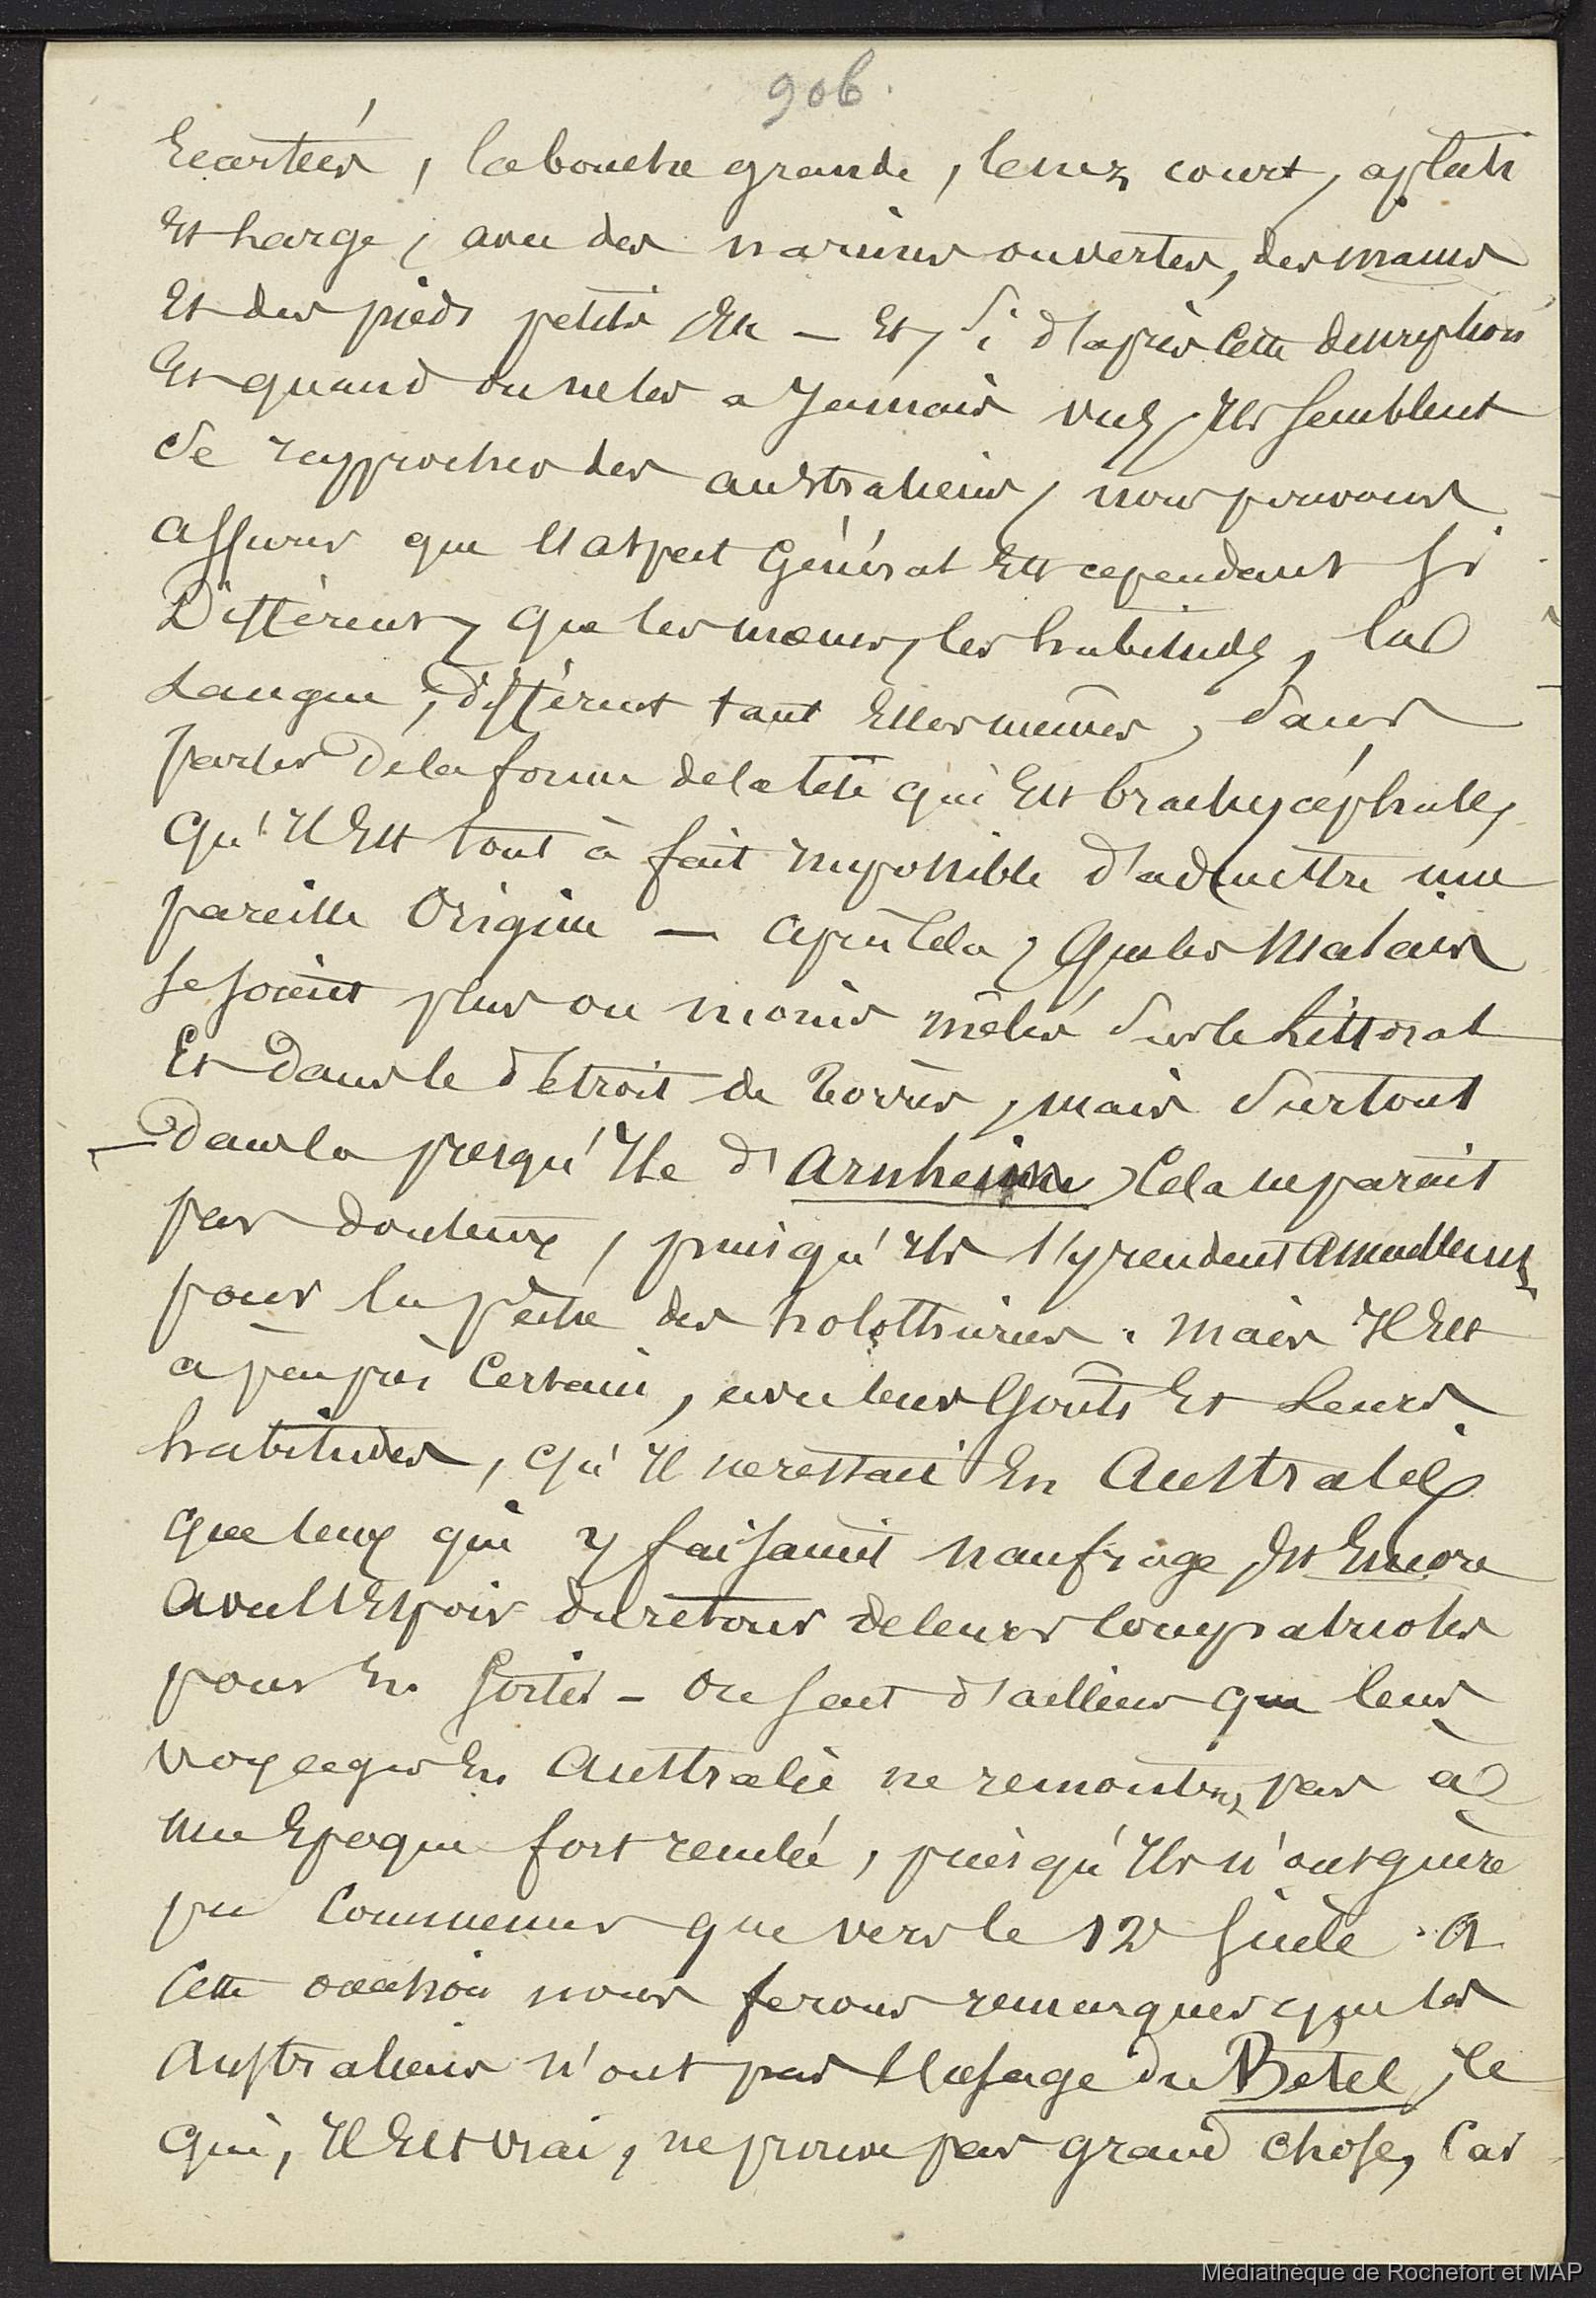 906.
Ecartées, la bouche grande, le nez court, aplati
Et large, avec des narines ouvertes, des mains
Et des pieds petits Etc — Et, Si d'après Cette description
Et quand on ne les a Jamais vus, Ils Semblent
Se rapprocher des australiens, nous pouvons
assurer que l'aspect Général Est cependant si
Différent, Que les mœurs, les habitudes, la
Langue, diffèrent tant Elles mêmes, Sans
parler De la forme de la tête qui Est brachycéphale,
Qu'Il Est tout à fait impossible d'admettre une
pareille Origine — après Cela, Que les Malais
se soient plus ou moins mêlés Sur le Littoral
Et Dans le détroit de Torrès, mais Surtout
— Dans la presqu'Ile d'Arnheim, Cela ne parait
pas douteux, puisqu'Ils s'y rendent annuellement
pour la pêche des holothuries. Mais Il Est
a peu près Certain, avec leurs Goûts Et Leurs
habitudes, qu'Il ne restait En Australie
que ceux qui y faisaient naufrage, Et Encore
avec l'Espoir du retour de leurs Compatriotes
pour En Sortir — On sait d'ailleurs que leurs
voyages En Australie ne remontent pas à
une Epoque fort reculée, puisqu'Ils n'ont guère
pu Commencer que vers le 12e Siècle. A
Cette occasion nous ferons remarquer que les
Australiens n'ont pas l'usage du Bétel, Ce
Qui, Il Est vrai, ne prouve pas grand chose, Car
Médiathèque de Rochefort et MAP